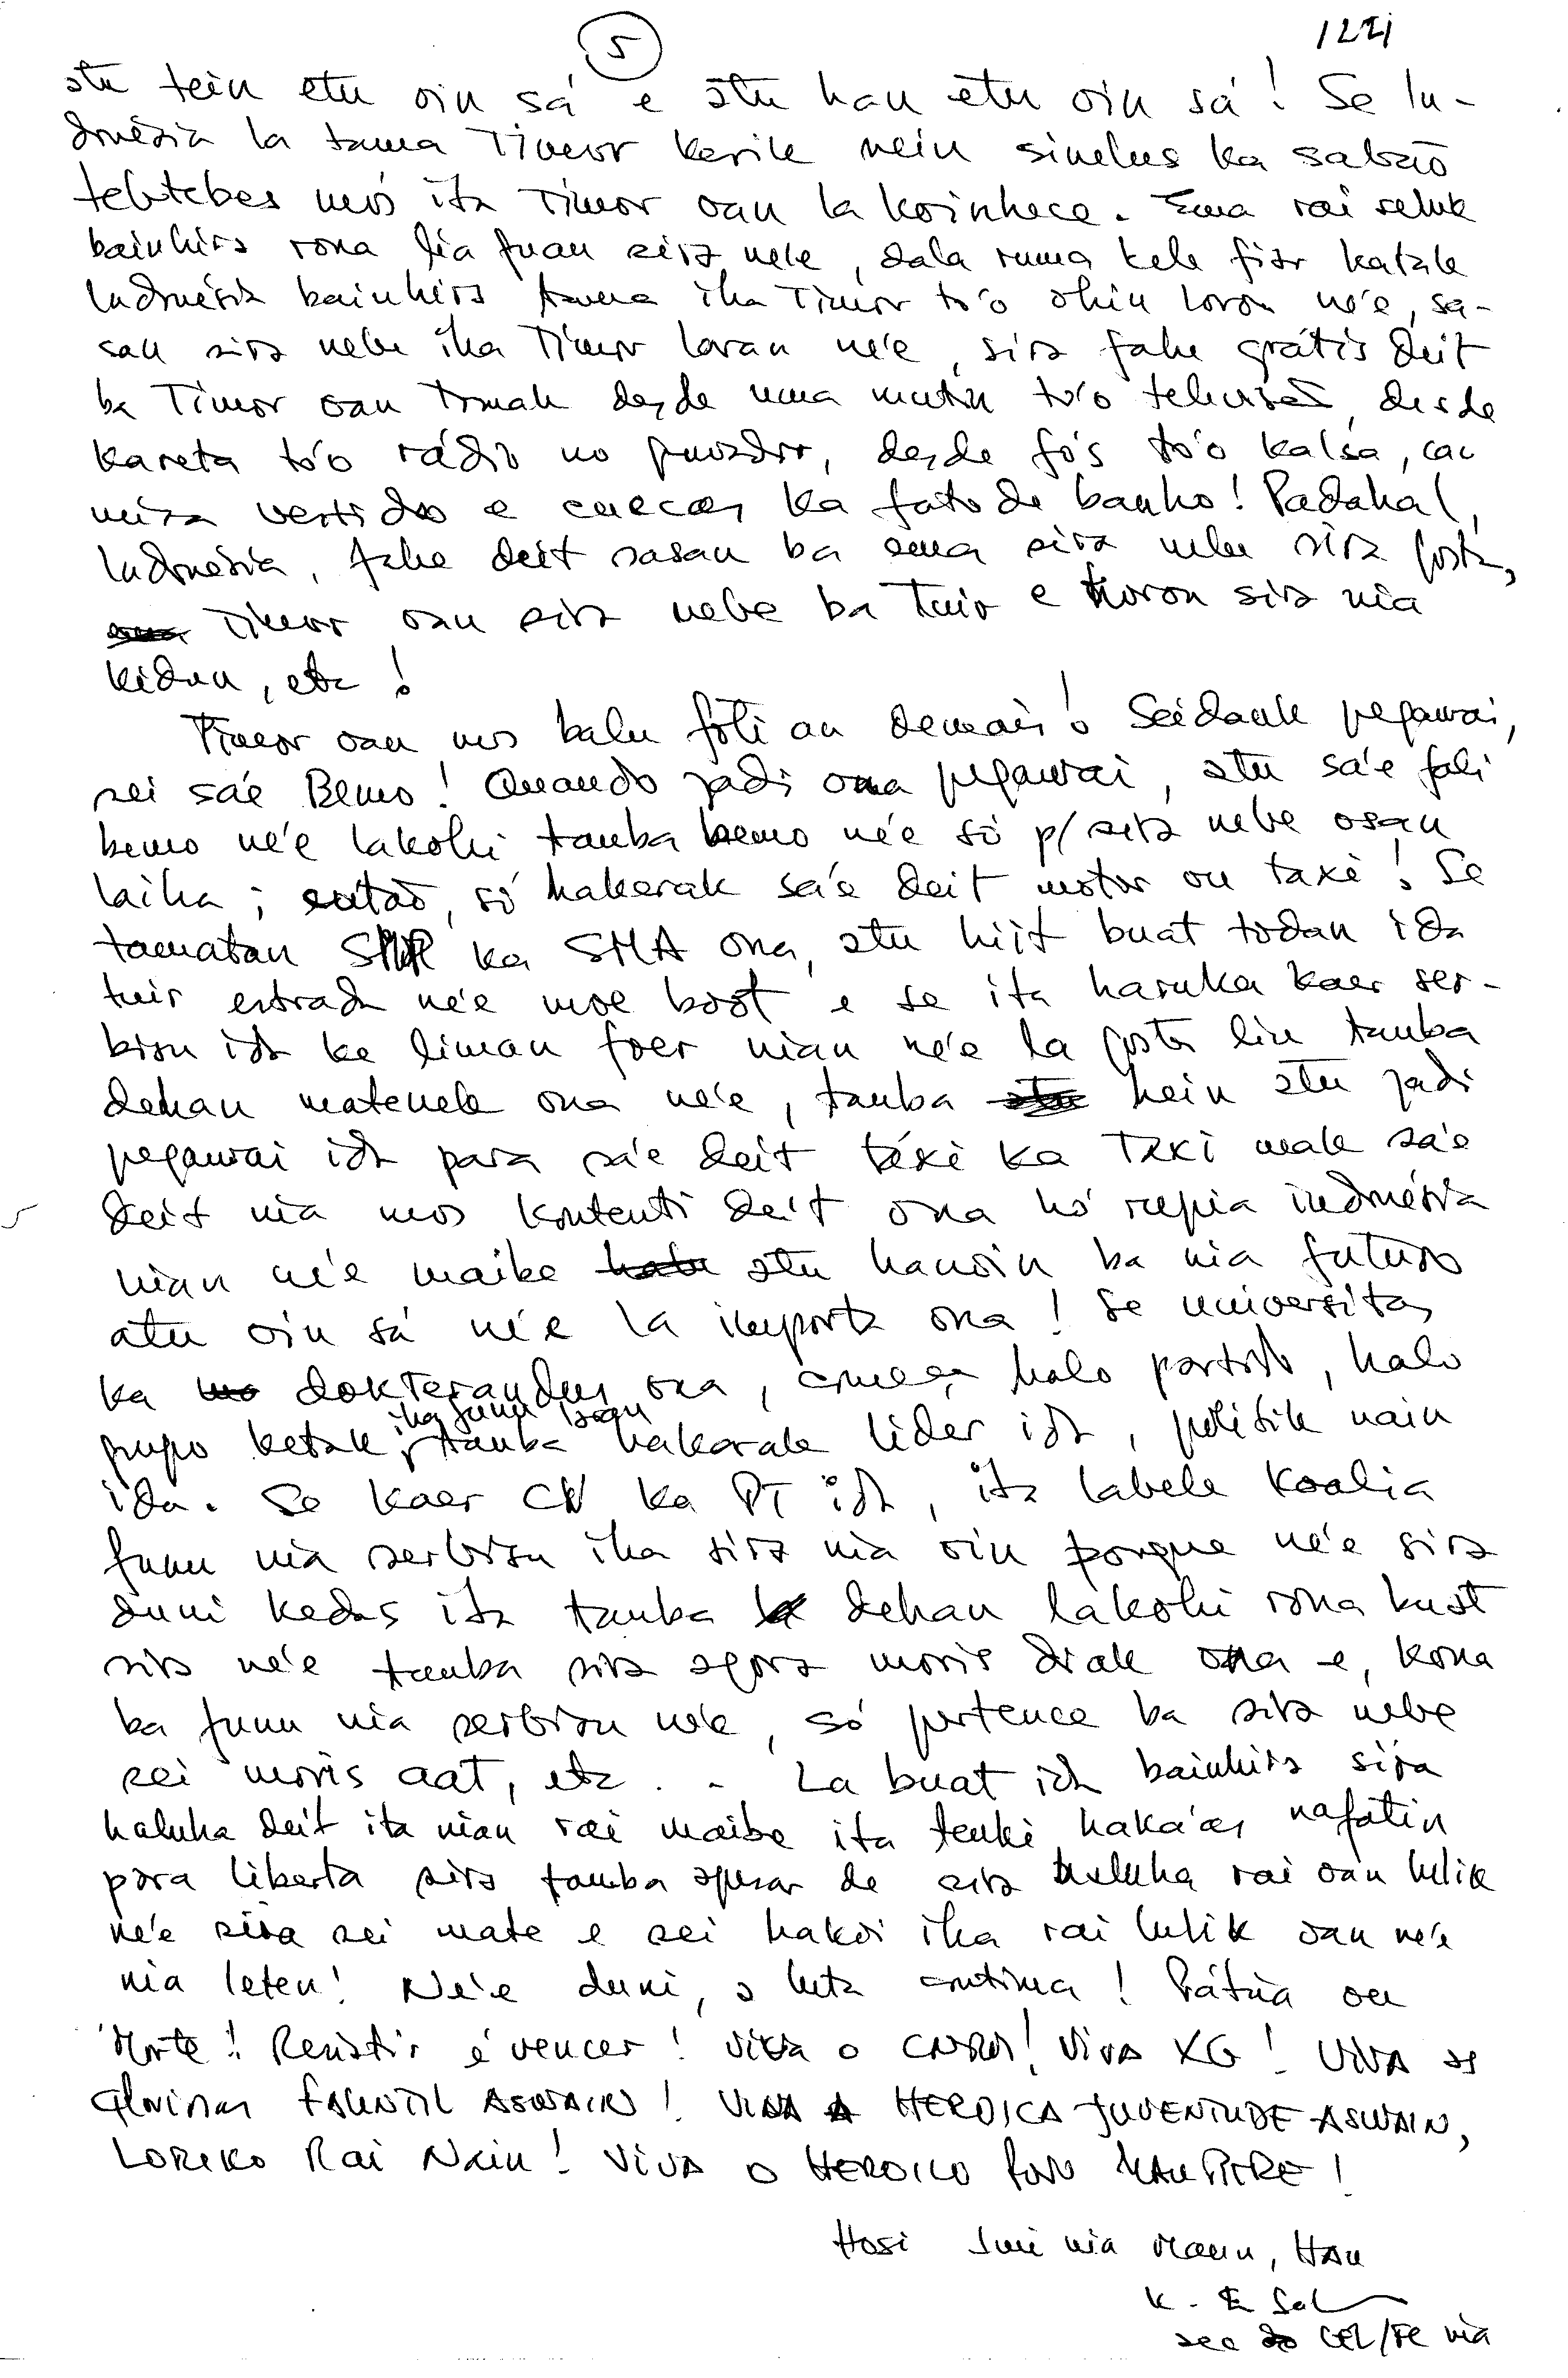 5
atu tein etu oin sá e atu han etu oin sá! Se In-
donésia la tama Timor karik nein sinelus ka sabão
tebtebes mós ita Timor oan la koinhece. Ema rai seluk
bainhira rona lia fuan sira nebe, dala ruma bele fiar katak
Indonésia bainhira tama iha Timor to'o ohin loron ne'e, sa-
san sira nebe iha Timor laran ne'e, sira fahe grátis deit
ba Timor oan tomak desde uma mutin to'o televisão, desde
kareta to'o rádio no gravador, desde fós to'o kalsa, ca
miza vestidos e cuecas ka fato de banho! Padahal,
Indonésia, fahe deit sasan ba ema sira nebe sira gosta,
Timor oan sira nebe ba tuir e horon sira nia
kidun, etc!
Timor oan mos balu foti an demais! Seidauk pegawai,
sei sa'e Bemo! Quando jadi ona pegawai, atu sa'e fali
bemo ne'e lakohi tamba bemo ne'e só p/ sira nebe osan
laiha; então, só hakarak sa'e deit motor ou taxi! Se
tamatan SMP ka SMA ona, atu hiit buat todan ida
tuir estrada ne'e moe boot e se ita haruka kaer ser-
bisu ida ke liman foer nian ne'e la gosta liu tamba
dehan matenek ona ne'e, tamba hein atu jadi
pegawai ida para sa'e deit táxi ka TAXI mak sa'e
deit nia mos kontenti deit ona hó rupia indonésia
nian ne'e maibe atu hanoin ba nia futuro
atu oin sá ne'e la importa ona! Se universitas
ka dokterandus ona, começa halo partido, halo
grupo ketak iha funu laran tamba hakarak lider ida, politik nain
ida. Se kaer CV ka PT ida, ita labele koalia
funu nia serbisu iha sira nia oin porque ne'e sira
duni kedas ita tamba dehan lakohi rona buat
sira ne'e tamba sira agora moris diak ona e, kona
ba funu nia serbisu ne'e, só pertence ba sira nebe
sei moris aat, etc.. La buat ida bainhira sira
haluha deit ita nian rai maibe ita tenki haka'as nafatin
para liberta sira tamba apesar de sira haluha rai oan lulik
ne'e sira sei mate e sei hakoi iha rai lulik oan ne'e
nia leten! Ne'e duni, a luta continua! Pátria ou
Morte! Resistir é vencer! Viva o CNRM! Viva XG! Viva as
gloriosas FALINTIL ASWAIN! VIVA A HEROICA JUVENTUDE ASWAIN,
LORIKO Rai Nain! VIVA O HEROICO Povo MAUBERE!
Hosi Imi nia Maun, Hau
sec do CEL/FE nia